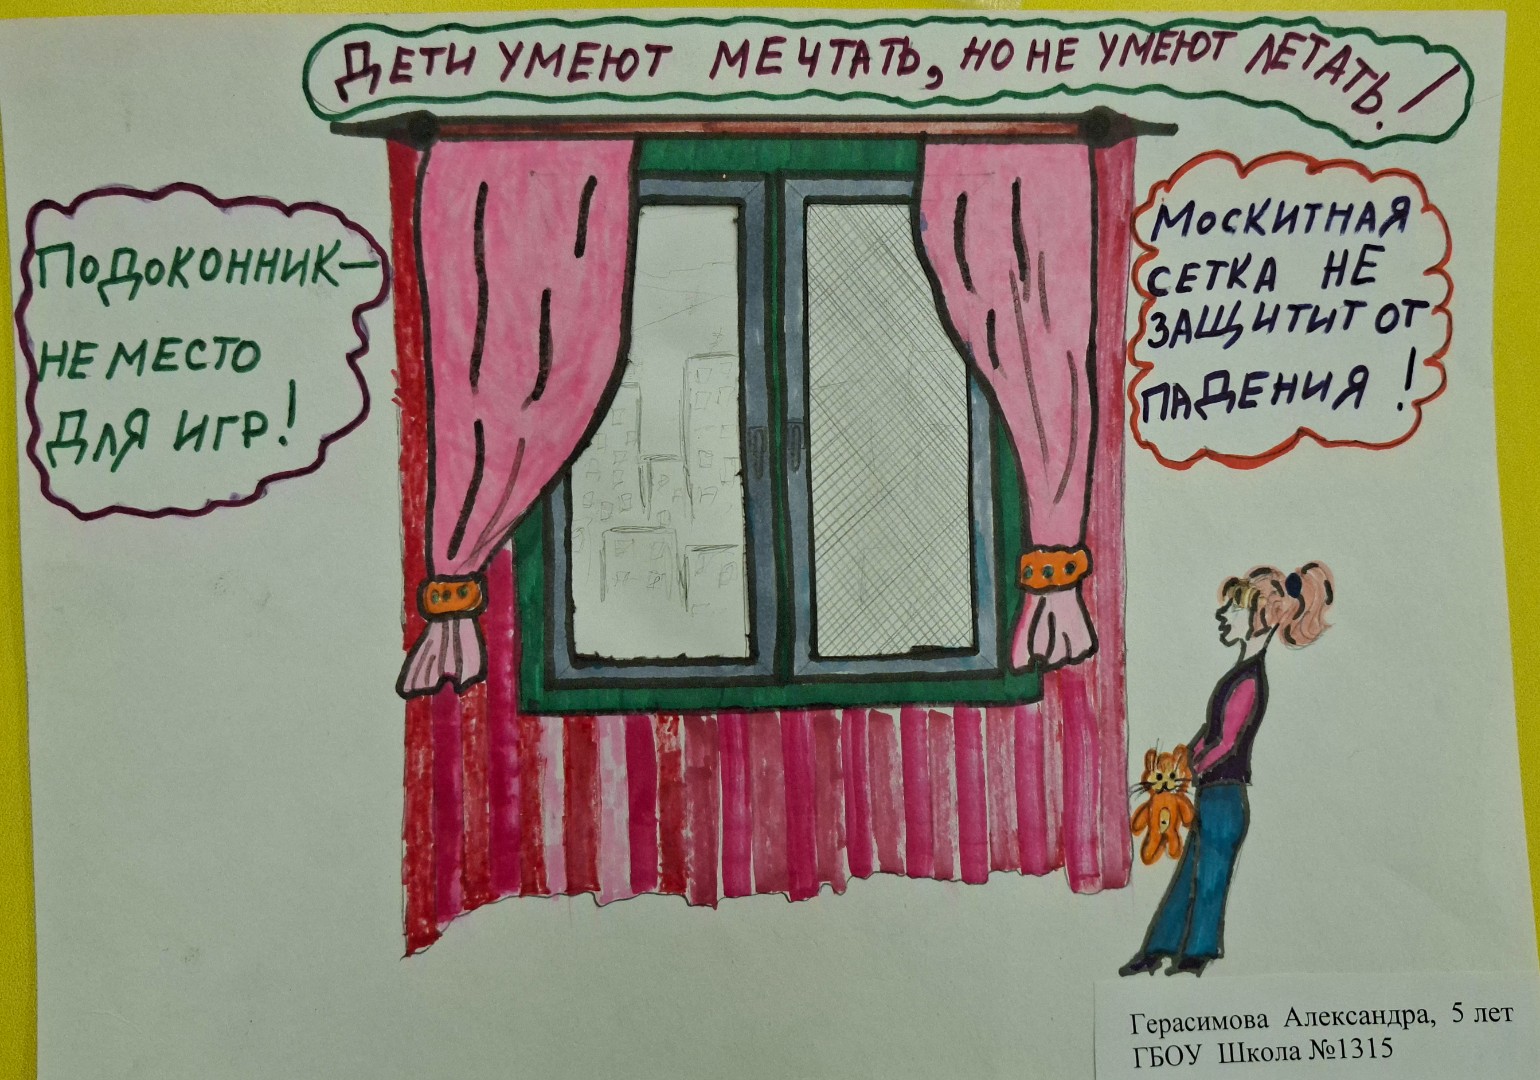 ДЕТИ УМЕЮТ МЕЧТАТЬ, НО НЕ УМЕЮТ ЛЕТАТЬ!
ПОДОКОННИК—
НЕ МЕСТО
ДЛЯ ИГР!
МОСКИТНАЯ
СЕТКА НЕ
ЗАЩИТИТ ОТ
ПАДЕНИЯ!
Герасимова Александра, 5 лет
ГБОУ Школа №1315